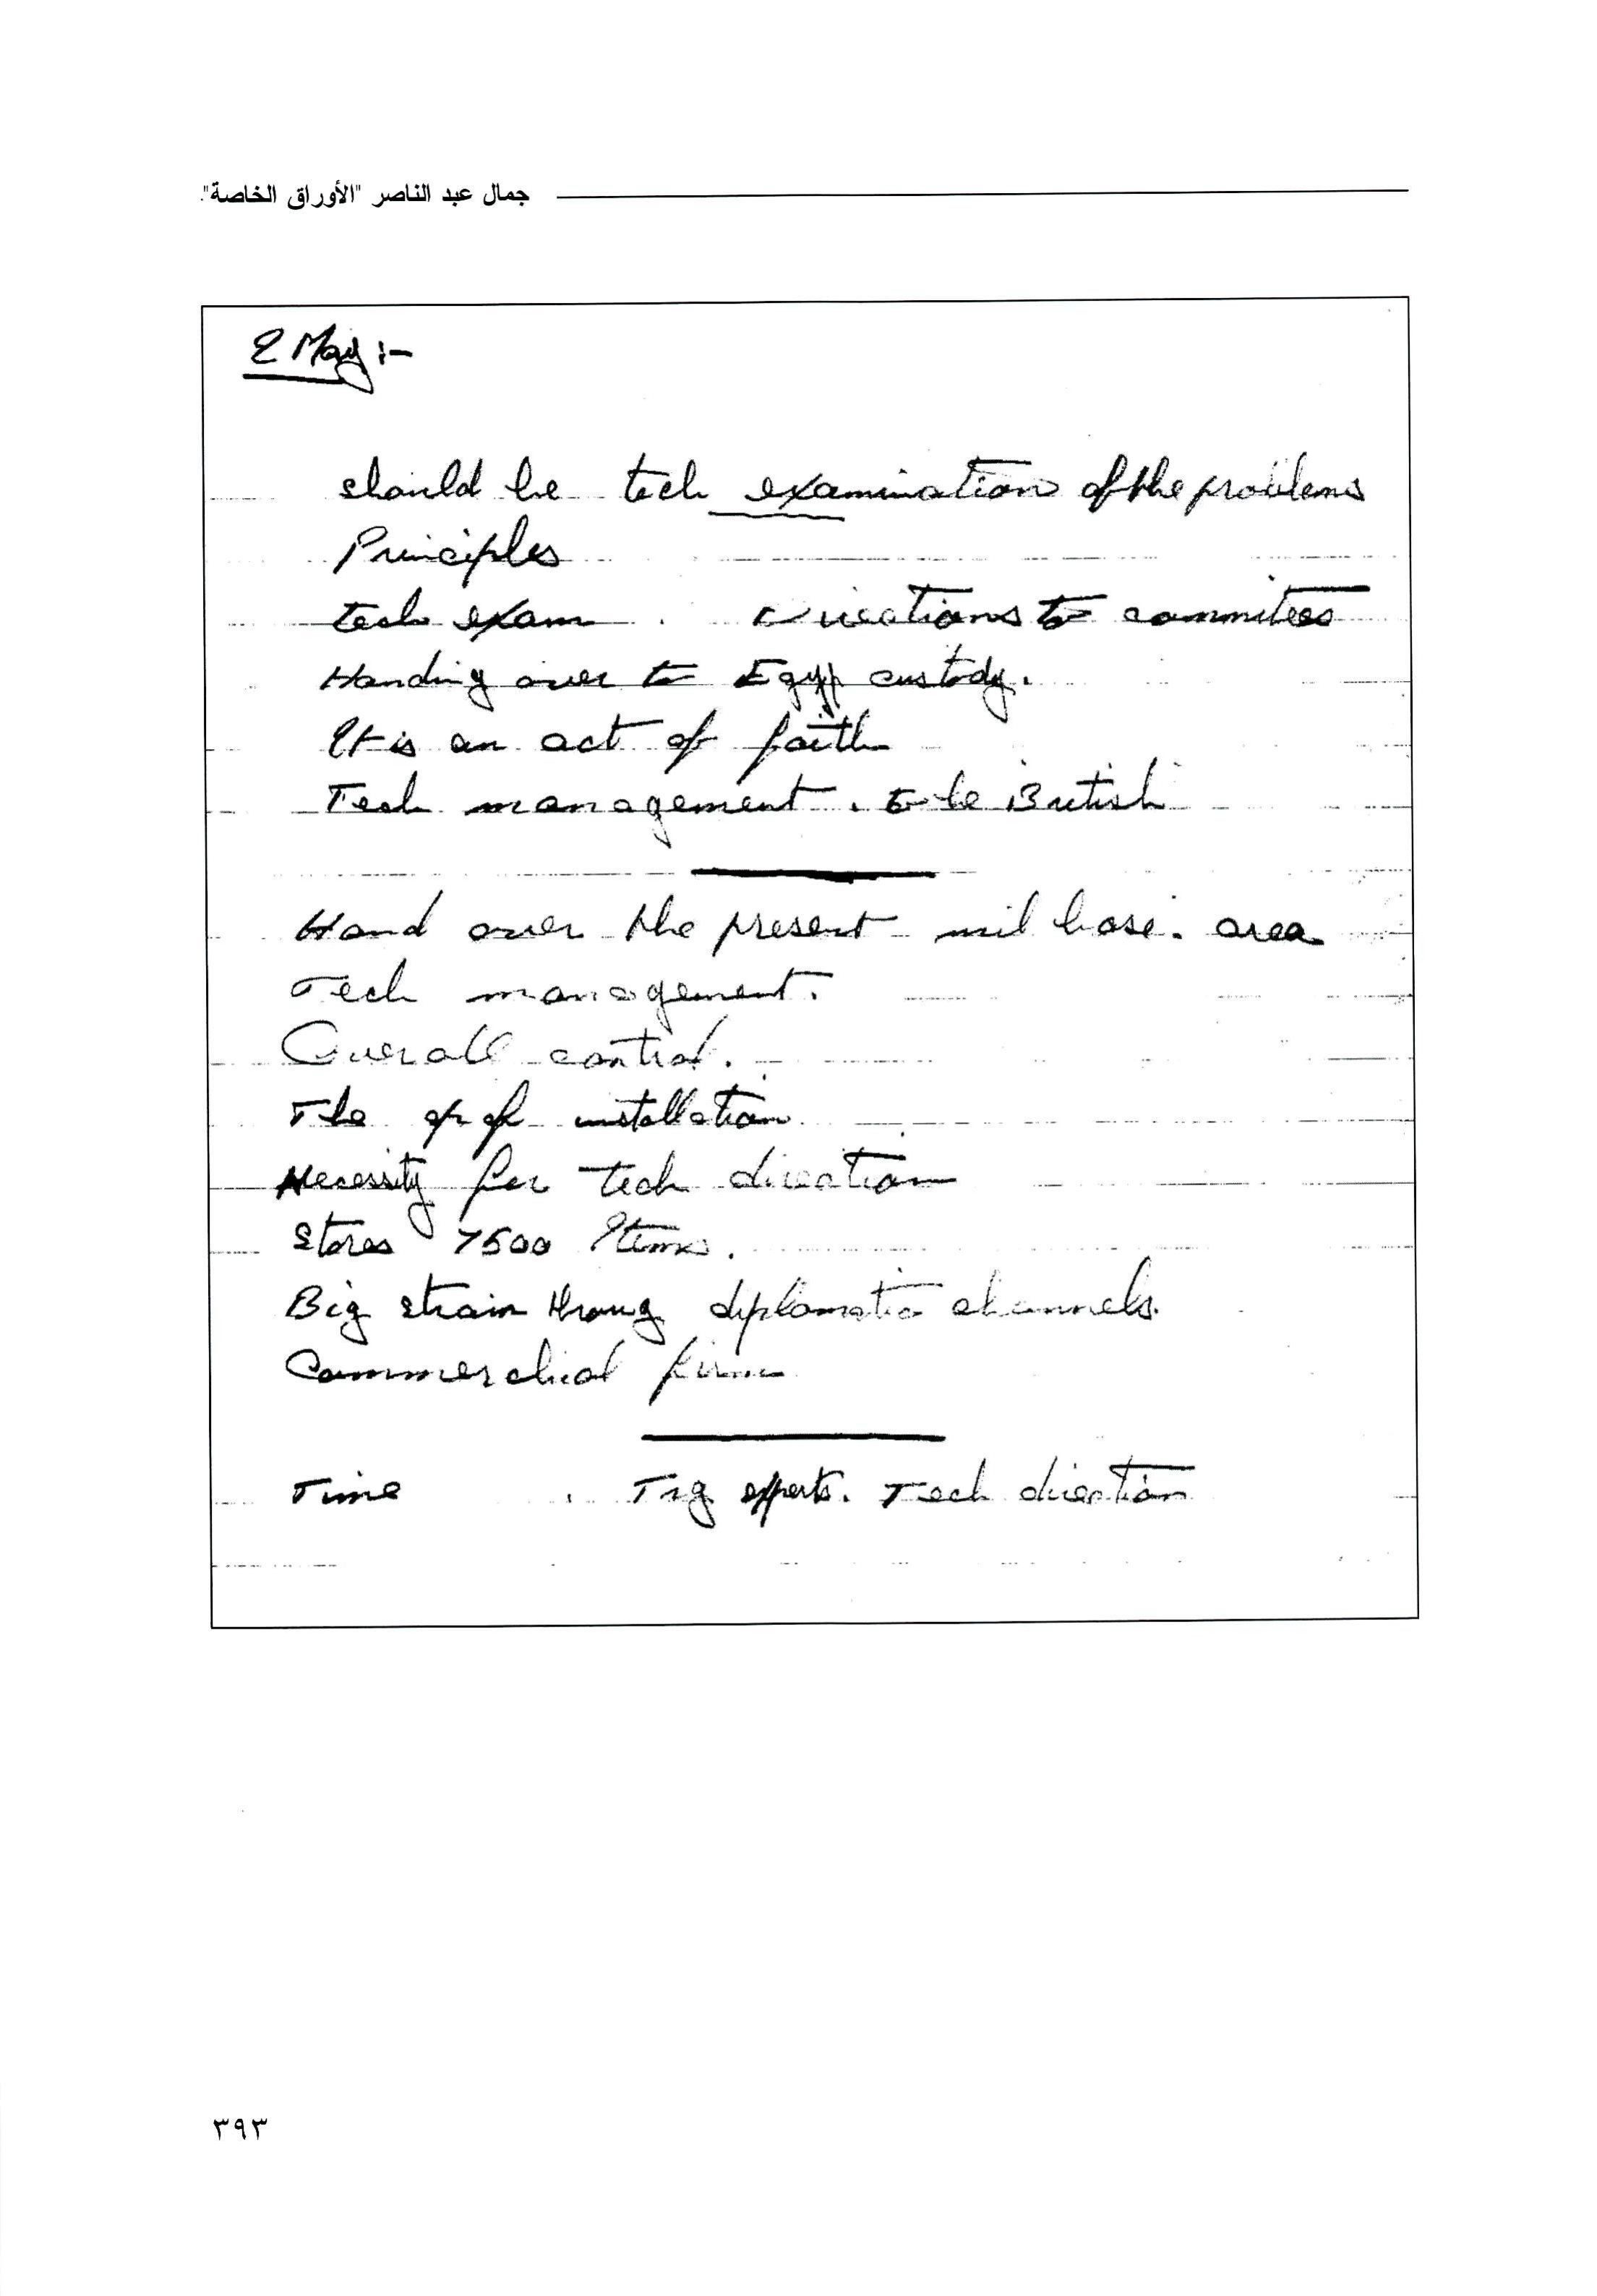 جمال عبد الناصر "الأوراق الخاصة".
2 May :-
should be tech examination of the problems
Principles
tech exam . Directions to commitees
Handing over to Egyp custody.
It is an act of faith
Tech management . to be British
Hand over the present mil base. area
Tech management.
Overall control.
The op of installation
Necessity for tech direction
Stores 7500 Items.
Big strain throug diplomatic channels.
Commerchial firm
Time . Trg experts. Tech direction
٣٩٣